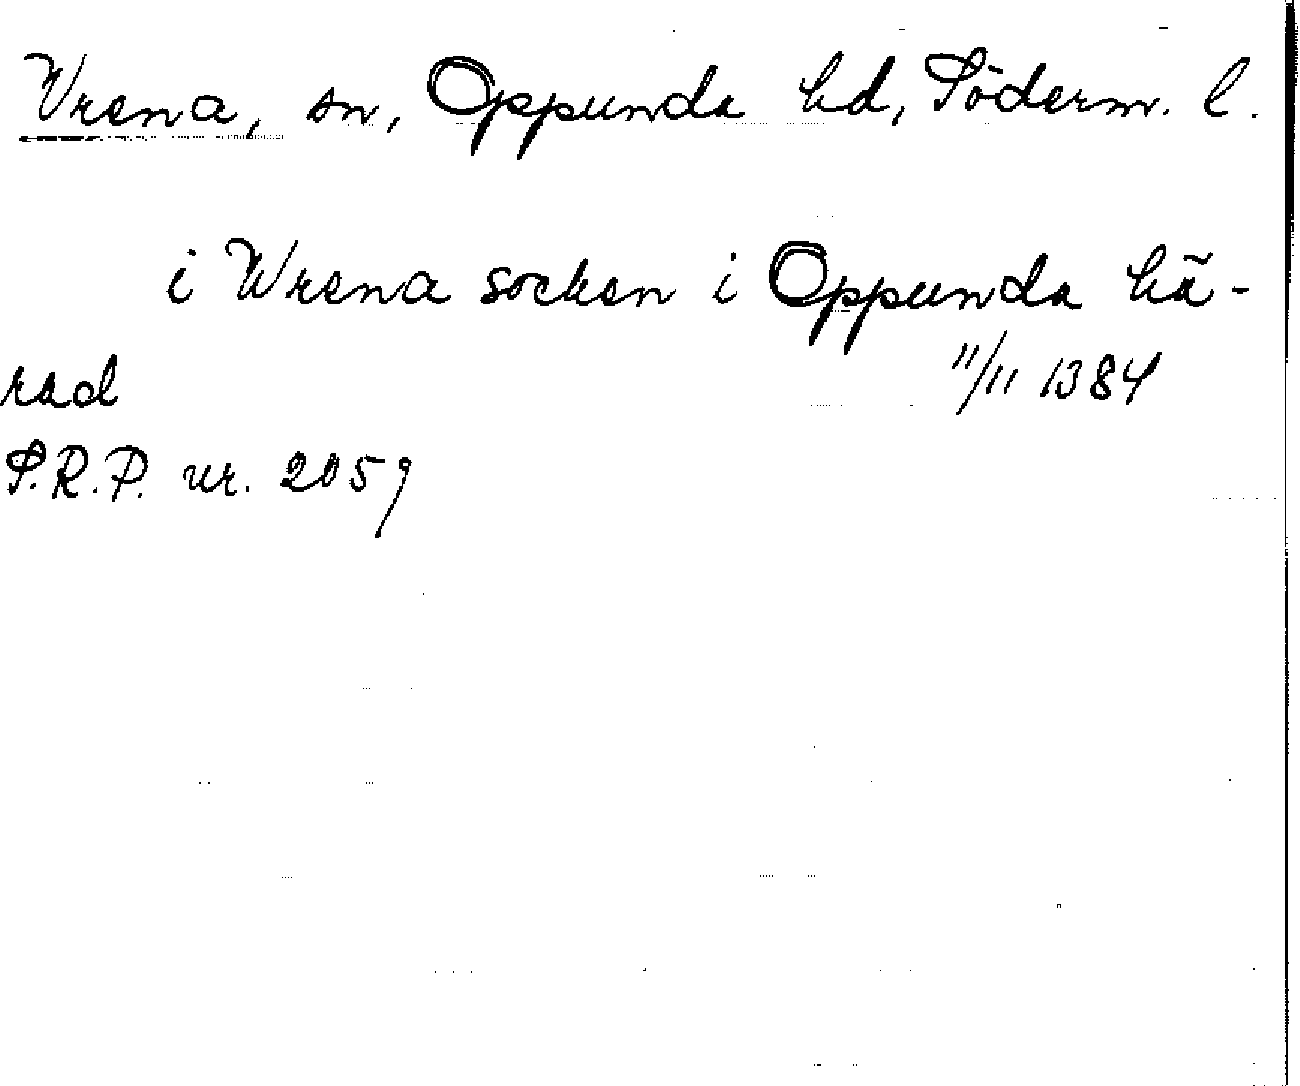 Vrena, sn, Oppunda hd, Söderm. l.
i Wrena socken i Oppunda hä-
rad 11/11 1384
S.R.P. nr. 2059